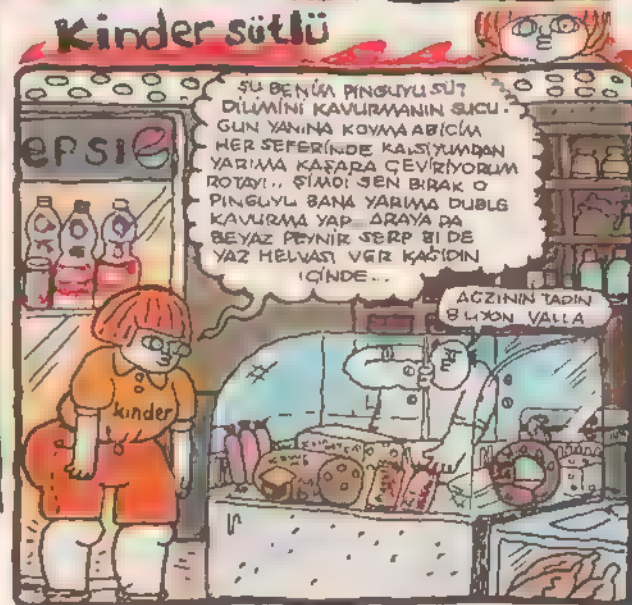 Kinder sütlü
EPSI
ŞU BENİM PINGUYU SÜT
DİLİMİNİ KAVURMANIN SUCU.
GUN YANINA KOYMA ABİCİM
HER SEFERİNDE KALSİYUMDAN
YARIMA KAŞARA ÇEVİRİYORUM
ROTAYI.. ŞİMDİ SEN BIRAK O
PINGUYU BANA YARIMA DUBLE
KAVURMA YAP ARAYA DA
BEYAZ PEYNİR SERP Bİ DE
YAZ HELVASI VER KAĞIDIN
İÇİNDE...
AĞZININ TADIN
BİLİYON VALLA
Kinder